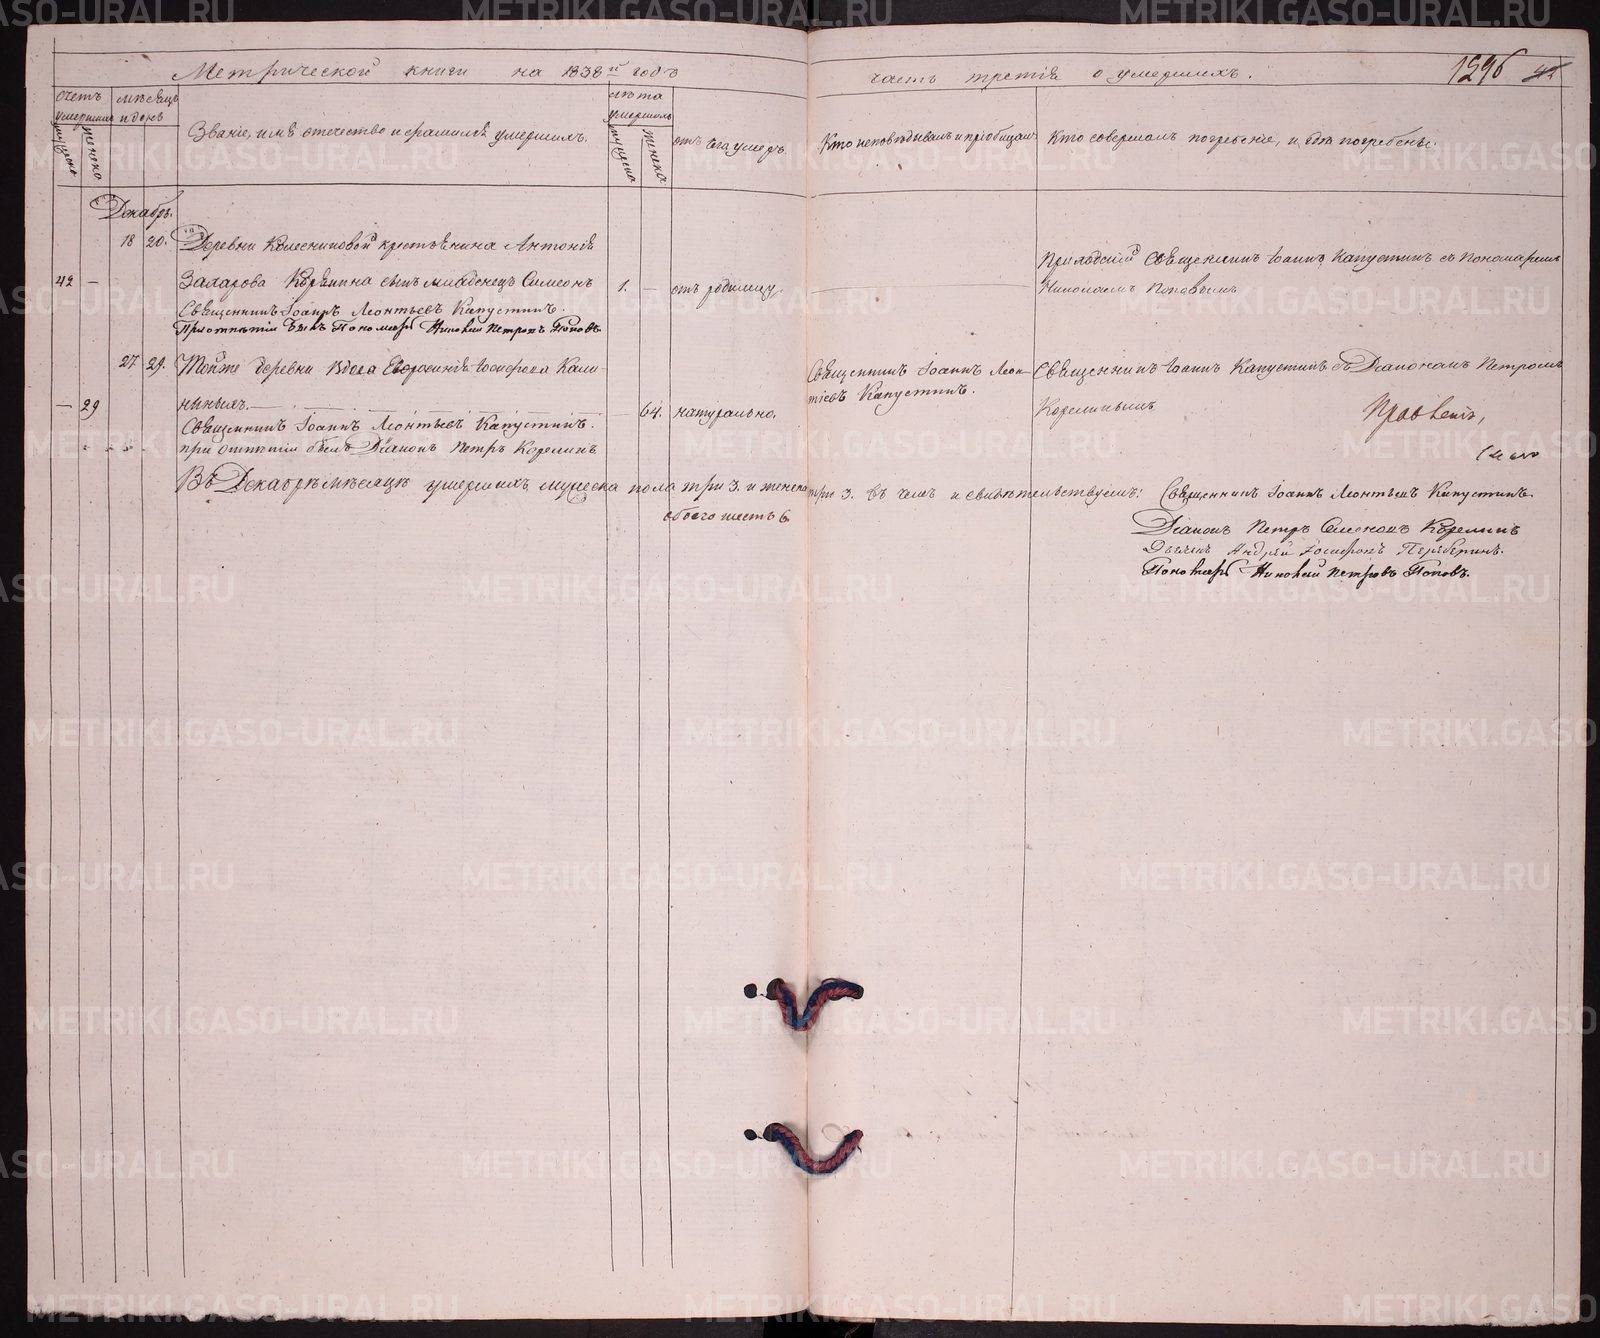 Метрической книги на 1838й годъ
часть третія о умершихъ.
1596
счетъ умершихъ
мѣсяцъ и день
Званіе, имя отечество и фамилія умершихъ.
лѣта умершихъ
отъ чего умеръ
Кто исповѣдывалъ и пріобщалъ
Кто совершалъ погребеніе, и гдѣ погребенъ.
мужеска
женска
мужеска
женска
Декабрь.
18 20. Деревни Колесниковой крестьянина Антонія
42 — Захарова Корѣлина сынъ младенецъ Симеонъ 1. — отъ родимцу.
Приходскій Священникъ Іоаннъ Капустинъ съ Пономаремъ
Николаемъ Поповымъ
Священникъ Іоаннъ Леонтьевъ Капустинъ.
При отпѣтіи былъ Пономарь Николай Петровъ Поповъ
27 29. Тойже деревни вдова Евфросинія Іосифова Кали-
— 29 ныныхъ. — 64. натурально.
Священникъ Іоаннъ Леон-
тіевъ Капустинъ.
Священникъ Іоаннъ Капустинъ съ Діакономъ Петромъ
Корелинымъ
Священникъ Іоаннъ Леонтьевъ Капустинъ.
при отпѣтіи былъ Діаконъ Петръ Корелинъ
Въ Декабрѣ мѣсяцѣ умершихъ мужеска пола три 3. и женска три 3. въ чемъ и свидѣтельствуемъ: Священникъ Іоаннъ Леонтьевъ Капустинъ.
обоего шесть 6.
Діаконъ Петръ Симеоновъ Корелинъ
Дьячекъ Андрей Іосифовъ
Пономарь Николай Петровъ Поповъ.
METRIKI.GASO-URAL.RU